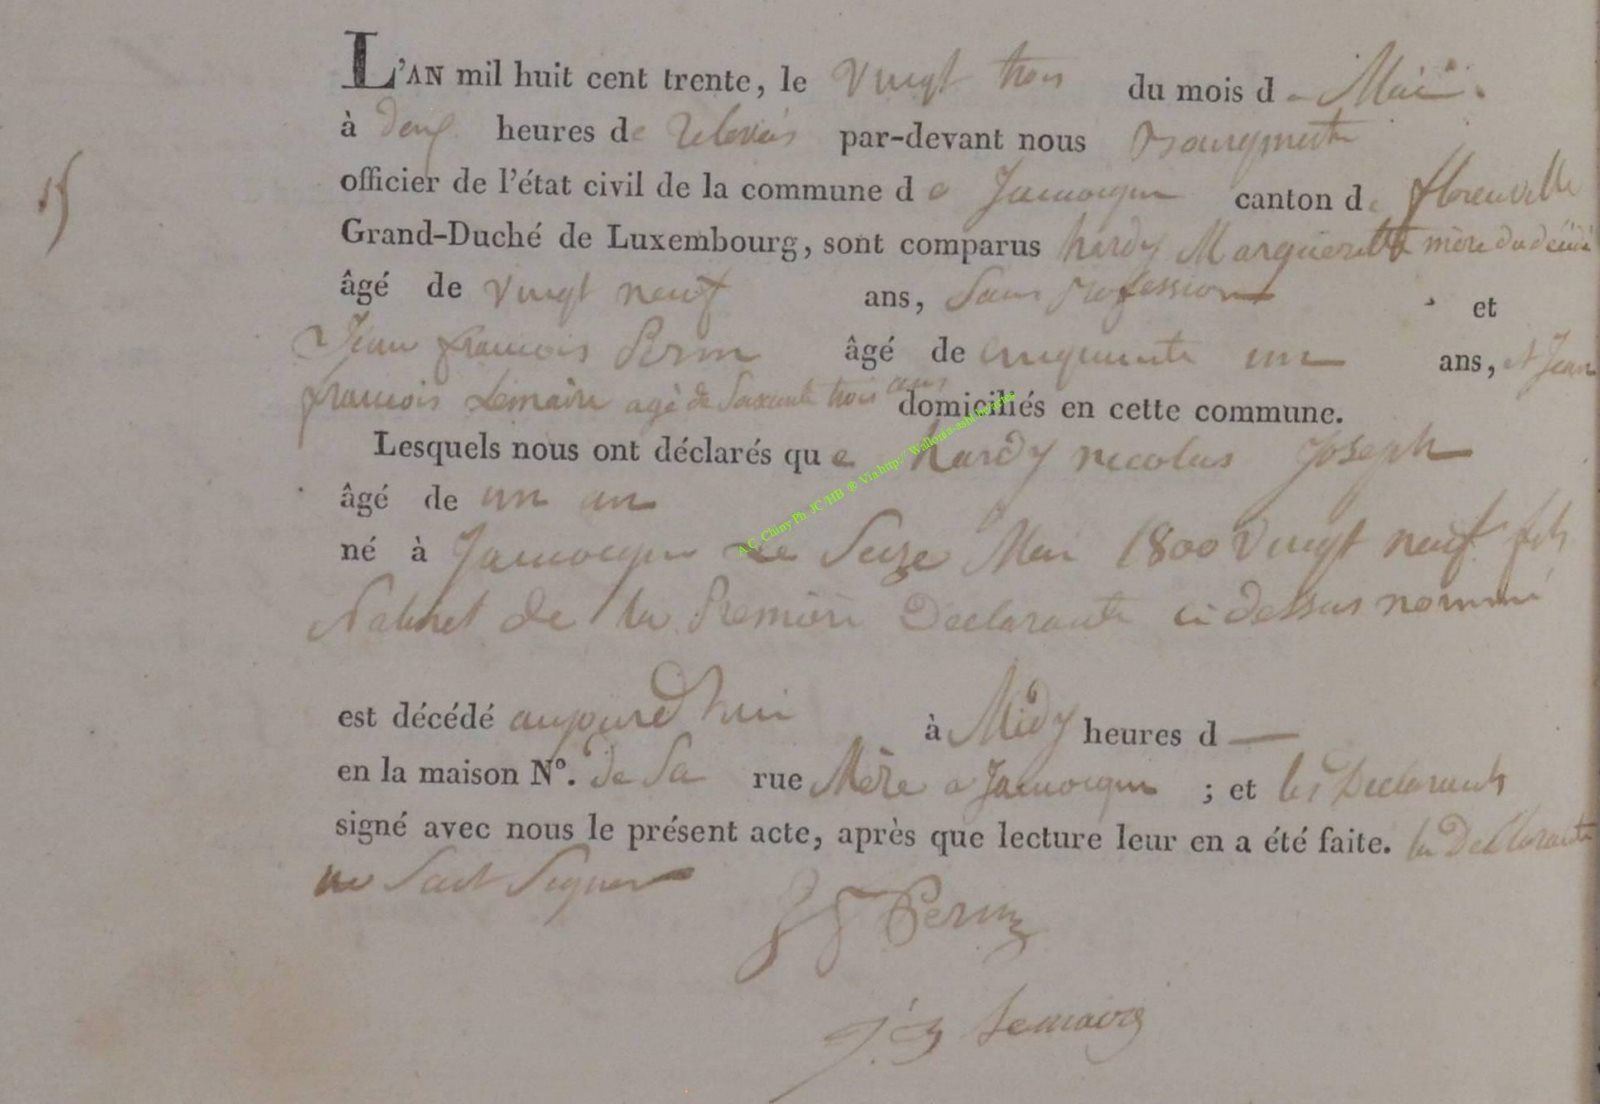 L'AN mil huit cent trente, le vingt trois du mois d Mai.
à deux heures de relevées par-devant nous Bourgmestre
officier de l'état civil de la commune d e Jamoigne canton de florenville
Grand-Duché de Luxembourg, sont comparus hardy Margueritte mère du
âgé de vingt neuf ans, Sans profession et
Jean françois Perin âgé de cinquante un ans, et Jean
françois Lemaire agè de Soixante trois ans domiciliés en cette commune.
Lesquels nous ont déclarés qu e hardy nicolas Joseph
âgé de un an
né à Jamoigne le Seize Mai 1800 vingt neuf fils
Naturel de la Premiere Declarante ci dessus nommé
est décédé aujourd'hui à Midy heures d —
en la maison N°. de Sa rue Mère a Jamoigne ; et les Declarants
signé avec nous le présent acte, après que lecture leur en a été faite. la Declarante
ne Sait Signer
Perin
Lemaire
A.C. Chiny Ph JC/HB ® Via http://Wallonia-asbl